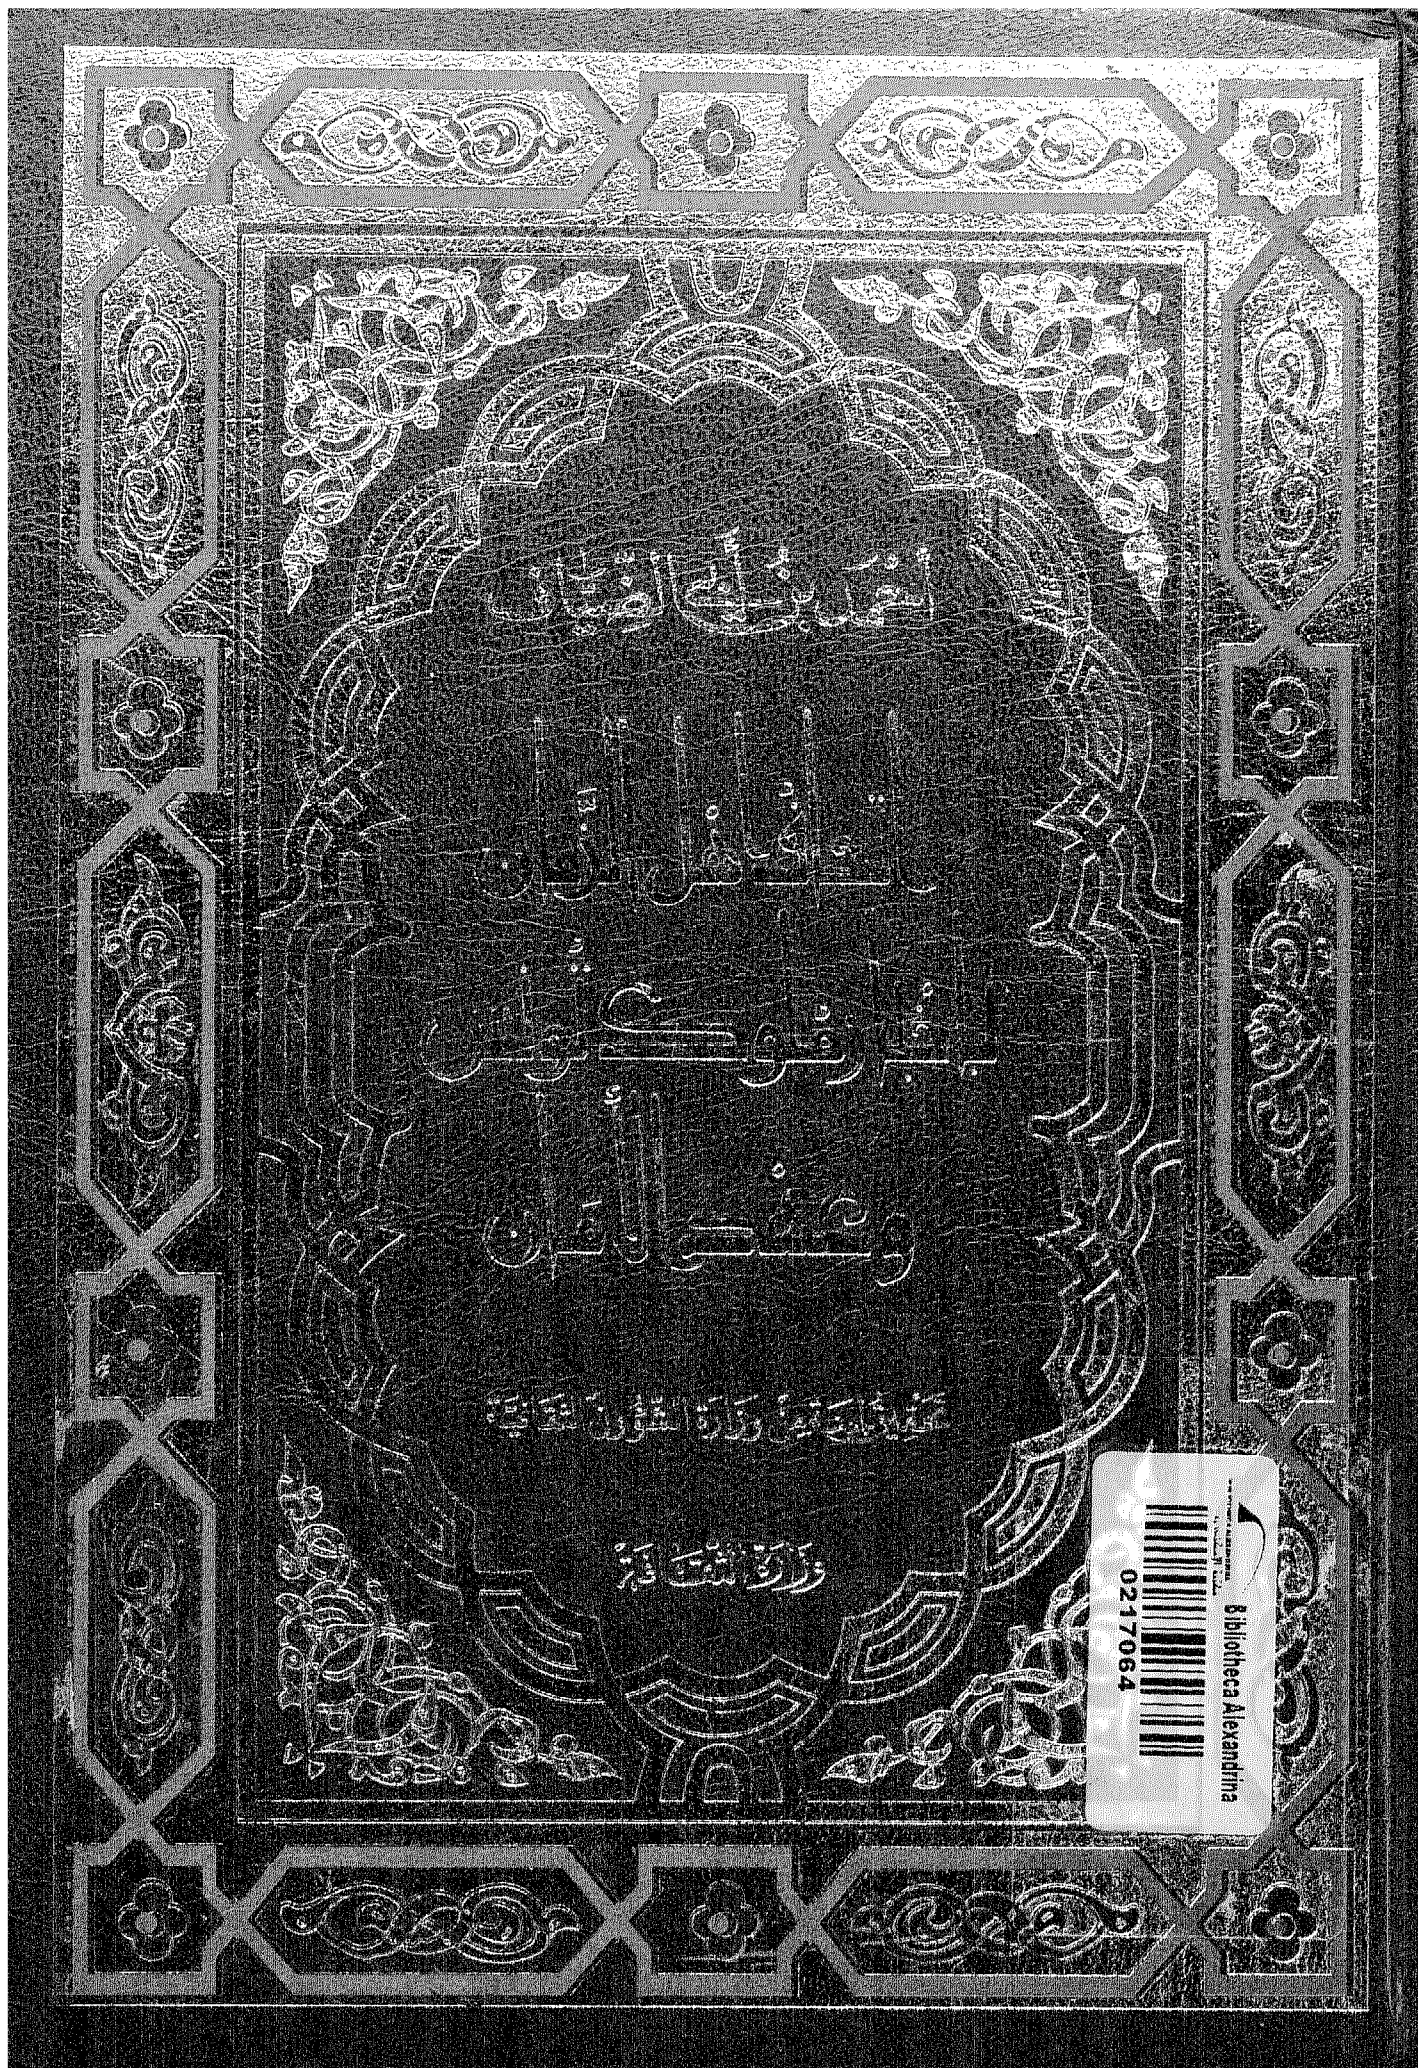 أحمد بن أبي الضياف
إتحاف أهل الزمان
بأخبار ملوك تونس
وعهد الأمان
تحقيق لجنة من وزارة الشؤون الثقافية
وزارة الثقافة
Bibliotheca Alexandrina
0217064